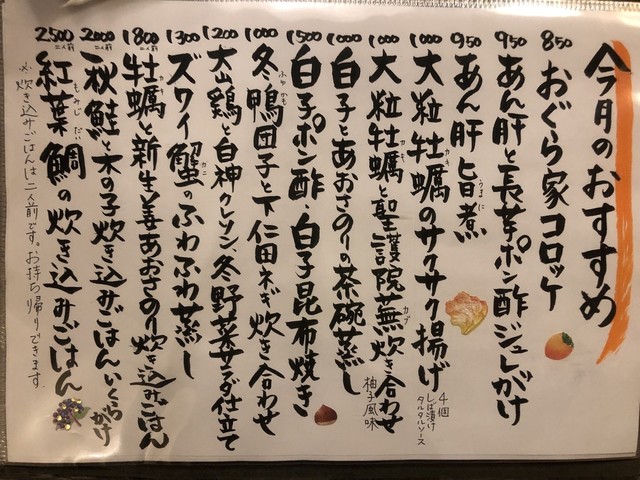 今月のおすすめ
850 おぐら家コロッケ
950 あん肝と長芋ポン酢ジュレがけ
950 あん肝旨煮
うまに
1000 大粒牡蠣のサクサク揚げ
カキ
4個
しば漬け
タルタルソース
1000 大粒牡蠣と聖護院蕪炊き合わせ
カキ
カブ
柚子風味
1000 白子とあおさのりの茶碗蒸し
1500 白子ポン酢・白子昆布焼き
1000 冬鴨団子と下仁田ネギ炊き合わせ
ふゆかも
1200 大山鶏と白神クレソン、冬野菜サラダ仕立て
1300 ズワイ蟹のふわふわ蒸し
カニ
1800 牡蠣と新生姜あおさのり炊き込みごはん
二人前
カキ
2000 秋鮭と木の子炊き込みごはんいくらがけ
二人前
2500 紅葉鯛の炊き込みごはん
二人前
もみじだい
※炊き込みごはんは二人前です。お持ち帰りできます。